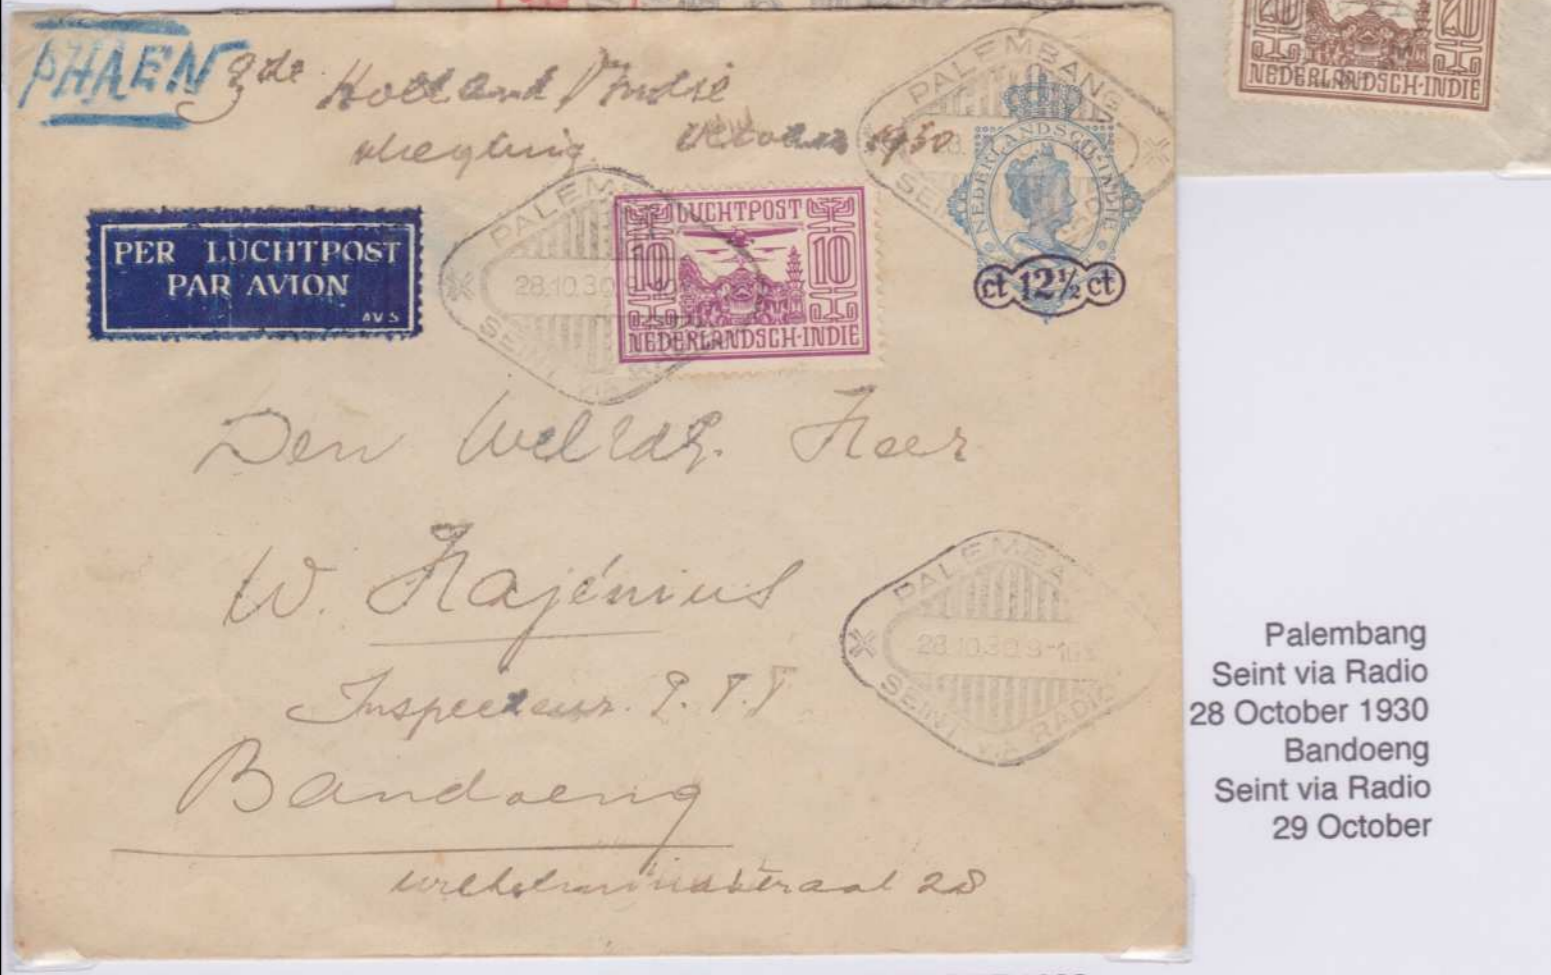 PHAEN
3de Holland Indië
vliegtuig October 1930
PER LUCHTPOST
PAR AVION
AVS
PALEMBANG
28.10.30.9-10
SEINT VIA RADIO
LUCHTPOST
10 10
NEDERLANDSCH-INDIE
PALEMBANG
28.
SEIN
NEDERLANDSCH-INDIE
ct 12½ ct
20
NEDERLANDSCH-INDIE
Den WelEdG. Heer
W. Hajenius
Inspecteur. P.T.T
Bandoeng
Wilhelminastraat 28
PALEMBA
28.10.30.9-10
SEINT VIA RADIO
Palembang
Seint via Radio
28 October 1930
Bandoeng
Seint via Radio
29 October